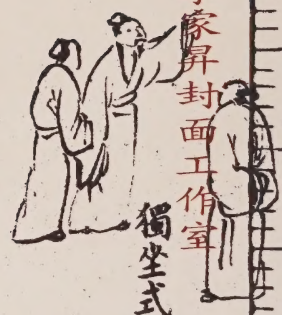 家昇封面工作室
獨坐式